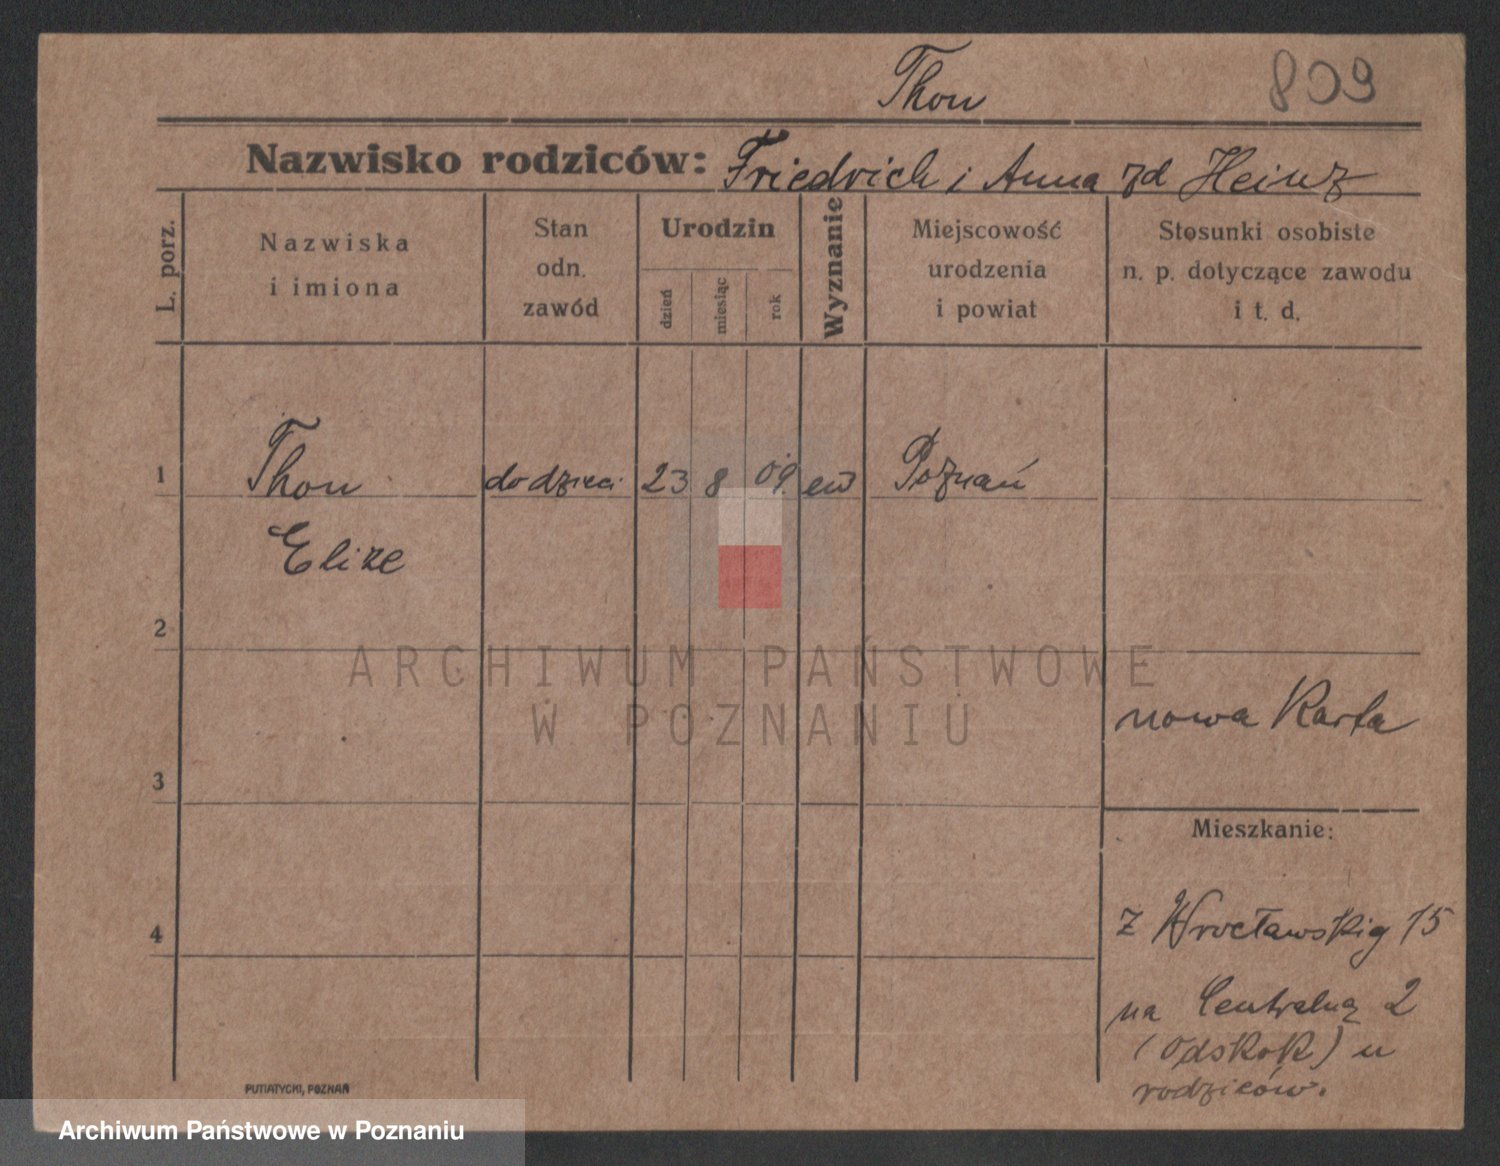 Thon
809
Nazwisko rodziców: Friedrich i Anna zd Heinz
L. porz.
Nazwiska
i imiona
Stan
odn.
zawód
Urodzin
dzień
miesiąc
rok
Wyznanie
Miejscowość
urodzenia
i powiat
Stosunki osobiste
n. p. dotyczące zawodu
i t. d.
1 Thon do dzieci 23 8 09. ew Poznań
Elize
2
ARCHIWUM PAŃSTWOWE
W POZNANIU
nowa Karta
3
Mieszkanie:
4
z Wrocławskiej 15
na Centralną 2
(Odskok) u
rodziców.
PUTIATYCKI, POZNAŃ
Archiwum Państwowe w Poznaniu